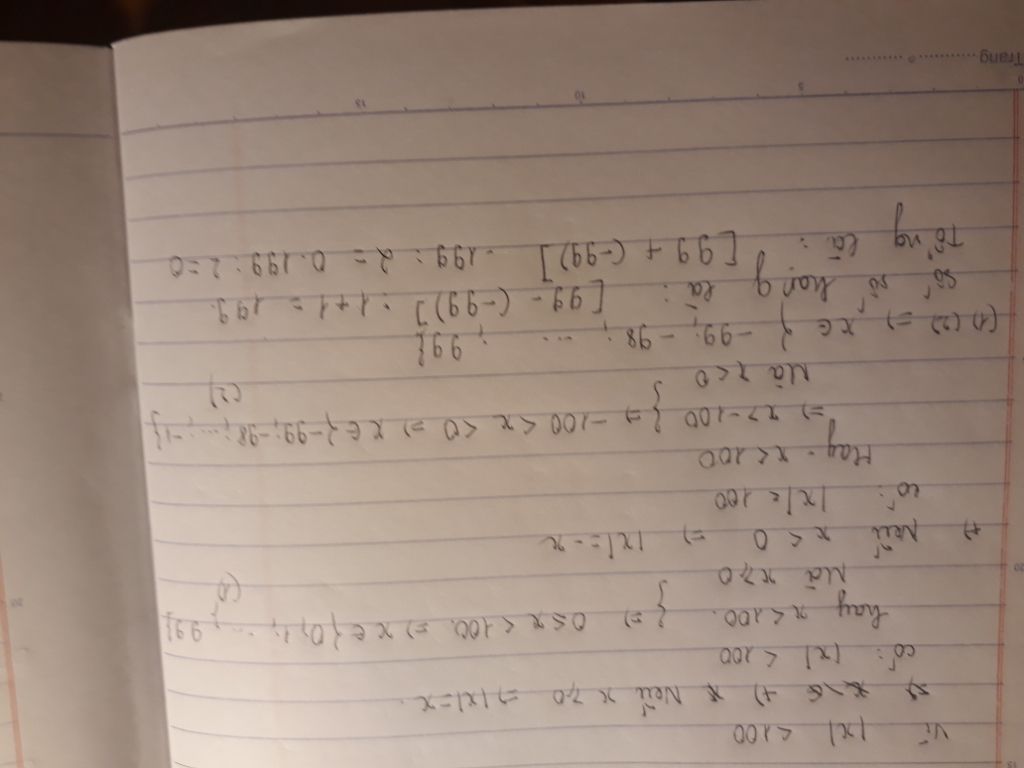 Vì |x| < 100
+) Nếu x ≥ 0 ⇒ |x| = x.
có: |x| < 100
hay x < 100.
Mà x ≥ 0 } ⇒ 0 ≤ x < 100 ⇒ x ∈ {0; 1; ...; 99} (1)
+) Nếu x < 0 ⇒ |x| = -x
có: |x| < 100
Hay -x < 100
⇒ x > -100
Mà x < 0 } ⇒ -100 < x < 0 ⇒ x ∈ {-99; -98; ...; -1} (2)
(1) (2) ⇒ x ∈ {-99; -98; ...; 99}
Số số hạng là: [99 - (-99)] : 1 + 1 = 199.
Tổng là: [99 + (-99)] . 199 : 2 = 0. 199 : 2 = 0
Trang
5
10
15
15
20
20